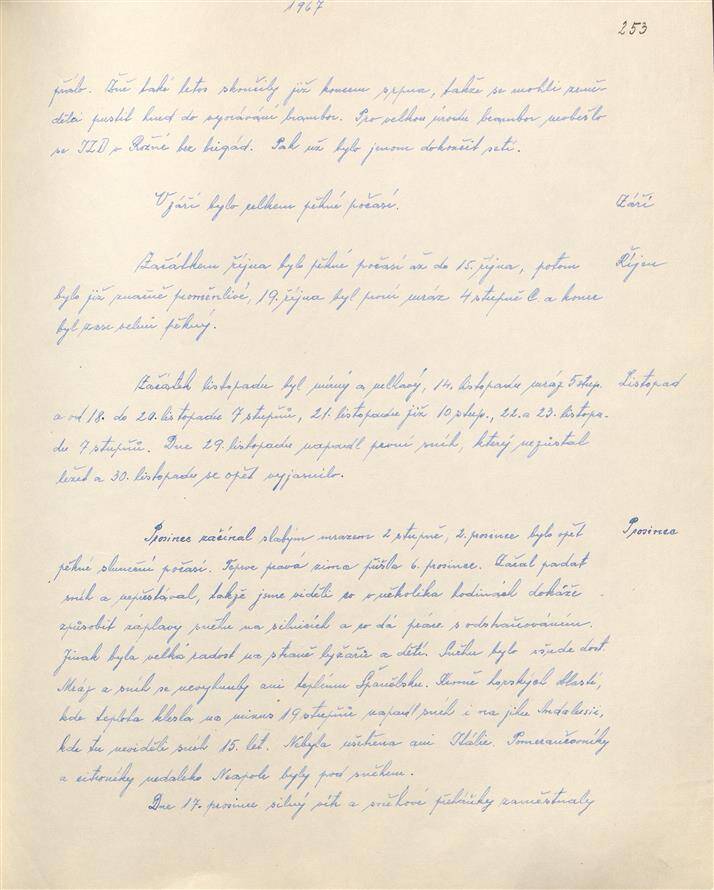 1967
253
pršlo. Žně také letos skončily již koncem srpna, takže se mohli země-
dělci pustit hned do vyorávání brambor. Pro velkou úrodu brambor neobešlo
se JZD v Rožné bez brigád. Pak už bylo jenom dokončit setí.
V září bylo celkem pěkné počasí. Září
Začátkem října bylo pěkné počasí až do 15. října, potom Říjen
bylo již značně proměnlivé, 19. října byl první mráz 4 stupně C. a konec
byl zase velmi pěkný.
Začátek listopadu byl mírný a mlhavý, 14. listopadu mráz 5 stup. Listopad
a od 18. do 20. listopadu 7 stupňů, 21. listopadu již 10 stup., 22. a 23. listopa-
du 7 stupňů. Dne 29. listopadu napadl první sníh, který nezůstal
ležet a 30. listopadu se opět vyjasnilo.
Prosinec začínal slabým mrazem 2 stupně, 2. prosince bylo opět Prosinec
pěkné sluneční počasí. Teprve pravá zima přišla 6. prosince. Začal padat
sníh a nepřestával, takže jsme viděli co v několika hodinách dokáže
způsobit záplavy sněhu na silnicích a co dá práce s odstraňováním.
Jinak byla velká radost na straně lyžařů a dětí. Sněhu bylo všude dost.
Mráz a sníh se nevyhnuly ani teplému Španělsku. Kromě horských oblastí,
kde teplota klesla na minus 19 stupňů napadl sníh i na jihu Andalusie,
kde tu neviděli sníh 15 let. Nebyla ušetřena ani Itálie. Pomerančovníky
a citroníky nedaleko Neapole byly pod sněhem.
Dne 17. prosince silný vítr a sněhové přeháňky zaměstnaly